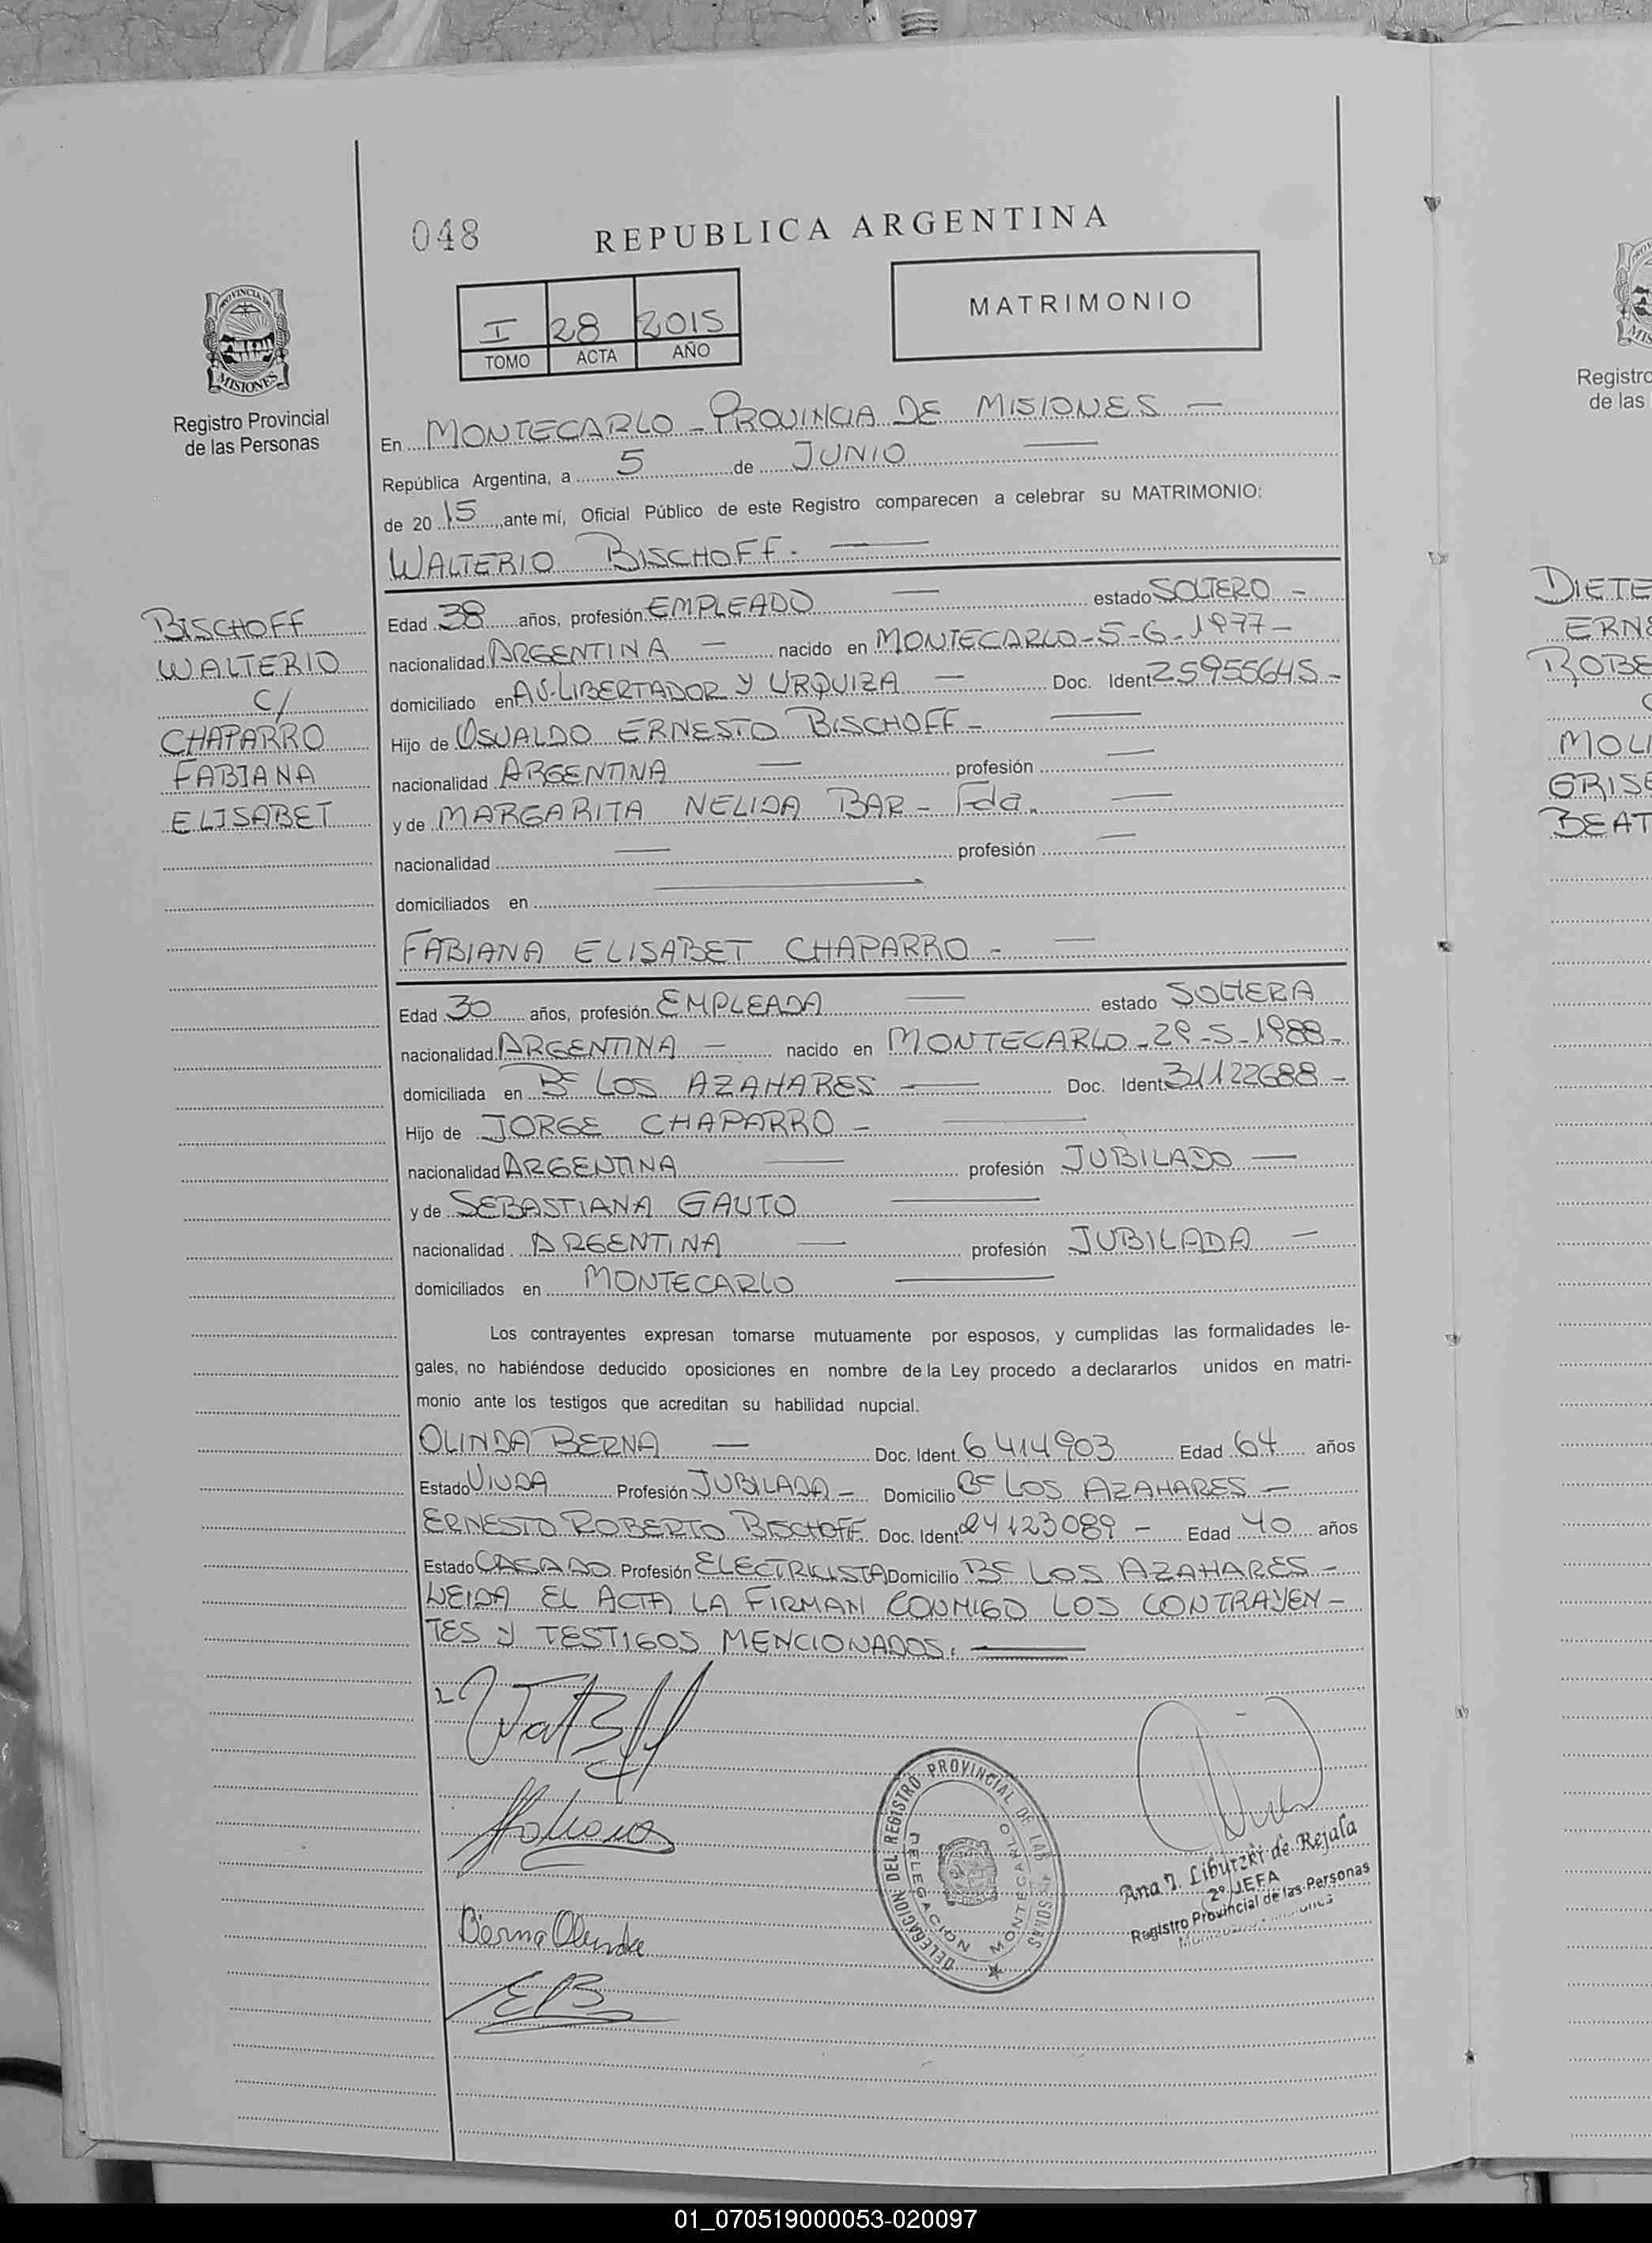 048
REPUBLICA ARGENTINA
I 28 2015
TOMO ACTA AÑO
MATRIMONIO
PROVINCIA DE
MISIONES
Registro Provincial
de las Personas
En MONTECARLO - PROVINCIA DE MISIONES —
República Argentina, a 5 de JUNIO —
de 2015, ante mí, Oficial Público de este Registro comparecen a celebrar su MATRIMONIO:
WALTERIO BISCHOFF. —
BISCHOFF
WALTERIO
C/
CHAPARRO
FABIANA
ELISABET
Edad 38 años, profesión EMPLEADO — estado SOLTERO -
nacionalidad ARGENTINA — nacido en MONTECARLO - 5 - 6 - 1977 -
domiciliado en AV. LIBERTADOR Y URQUIZA — Doc. Ident. 25955645 -
Hijo de OSVALDO ERNESTO BISCHOFF - —
nacionalidad ARGENTINA — profesión —
y de MARGARITA NELIDA BAR - Fda. —
nacionalidad — profesión —
domiciliados en —
FABIANA ELISABET CHAPARRO - —
Edad 30 años, profesión EMPLEADA — estado SOLTERA
nacionalidad ARGENTINA — nacido en MONTECARLO - 29 - 5 - 1988 -
domiciliada en Bº LOS AZAHARES — Doc. Ident. 31122688 -
Hijo de JORGE CHAPARRO - —
nacionalidad ARGENTINA — profesión JUBILADO —
y de SEBASTIANA GAUTO —
nacionalidad ARGENTINA — profesión JUBILADA —
domiciliados en MONTECARLO —
Los contrayentes expresan tomarse mutuamente por esposos, y cumplidas las formalidades le-
gales, no habiéndose deducido oposiciones en nombre de la Ley procedo a declararlos unidos en matri-
monio ante los testigos que acreditan su habilidad nupcial.
OLINDA BERNA — Doc. Ident. 6414903 Edad 64 años
Estado VIUDA Profesión JUBILADA - Domicilio Bº LOS AZAHARES -
ERNESTO ROBERTO BISCHOFF Doc. Ident. 24123089 - Edad 40 años
Estado CASADO Profesión ELECTRICISTA Domicilio Bº LOS AZAHARES -
LEIDA EL ACTA LA FIRMAN CONMIGO LOS CONTRAYEN-
TES Y TESTIGOS MENCIONADOS. —
Berna Olinda
EB
DELEGACION DEL REGISTRO PROVINCIAL DE LAS
DELEGACIÓN MONTECARLO
Ana T. Libutzki de Rejala
2º JEFA
Registro Provincial de las Personas
Registro
de las
DIETE
ERNE
ROBE
C
MOLI
GRISE
BEAT
01_070519000053-020097